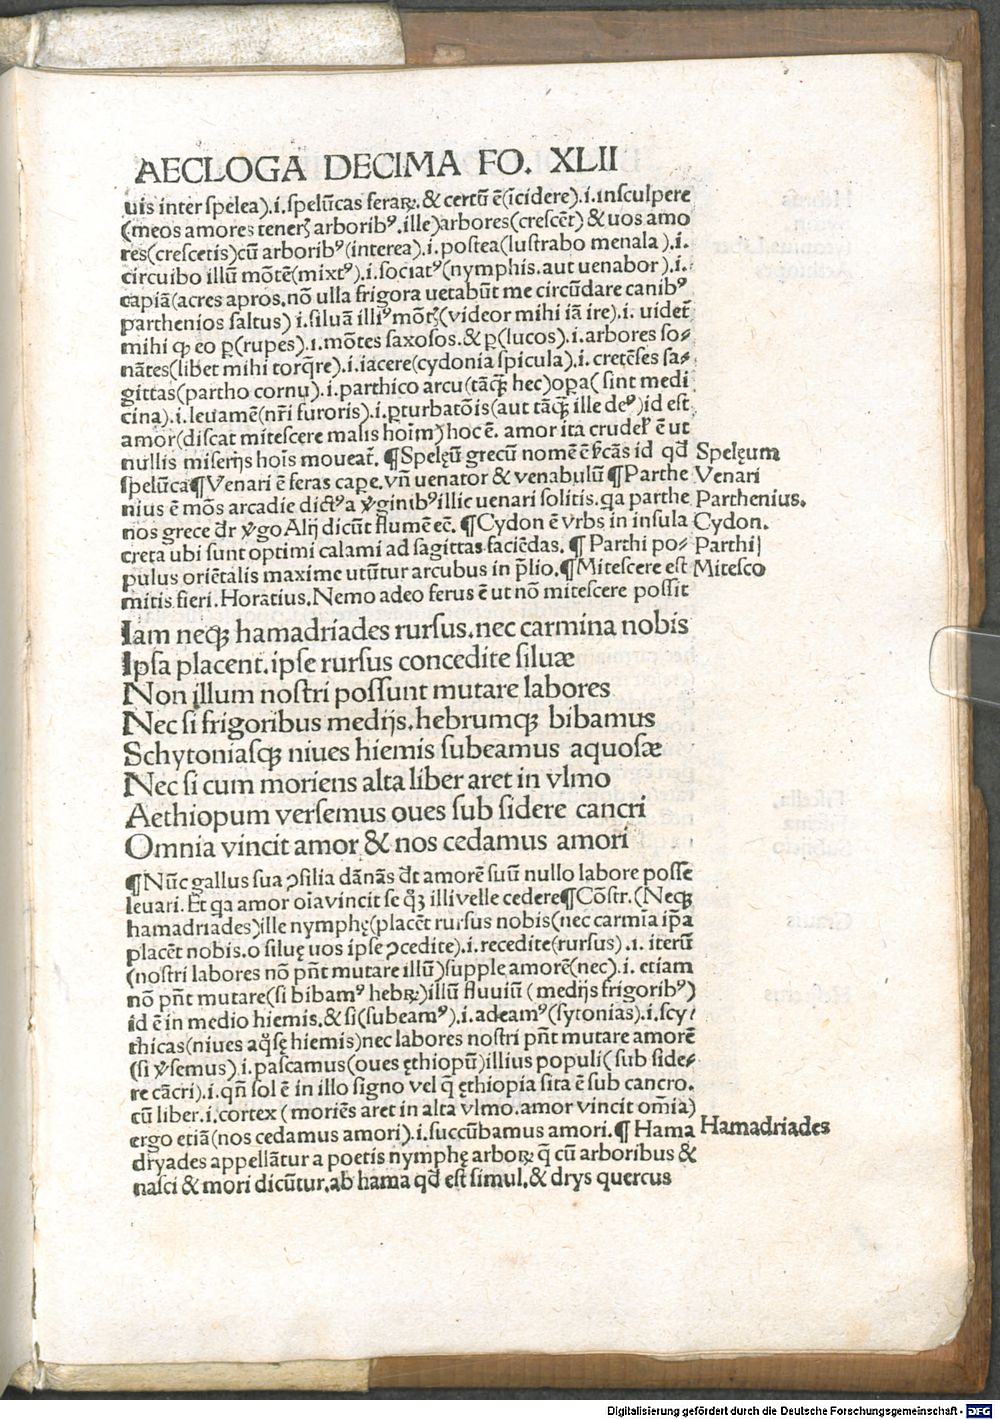 AECLOGA DECIMA FO. XLII
uis inter spelea).i.spelūcas feraꝝ.& certū ē(īcidere).i.insculpere
(meos amores teneris arboribꝰ.ille)arbores(crescēt) & uos amo
res(crescetis)cū arboribꝰ(interea).i.postea(lustrabo menala).i.
circuibo illū mōtē(mixtꝰ).i.sociatꝰ(nymphis.aut uenabor).i.
capiā(acres apros.nō ulla frigora uetabūt me circūdare canibꝰ
parthenios saltus) i.siluā illiꝰ mōtꝭ(videor mihi iā ire).i. uidet̄
mihi ꝙ eo ꝑ(rupes).i.mōtes saxosos.& ꝑ(lucos).i.arbores so⸗
nātes(libet mihi torq̄re).i.iacere(cydonia spicula).i.cretēses sa⸗
gittas(partho cornu).i.parthico arcu(tāꝙ hec)oꝑa( sint medi
cina).i.leuamē(nr̄i furoris).i.ꝑturbatōis(aut tāꝙ ille deꝰ)id est
amor(discat mitescere malis hoīm)hoc ē. amor ita crudel̄ ē ut
nullis miserijs hoīs moueat̄. ¶Spelęū grecū nomē ē ſ̄cās id qđ Spelęum
spelūca¶Venari ē feras cape.vn̄ uenator & venabulū ¶Parthe Venari
nius ē mōs arcadie dictꝰa v̄ginibꝰillic uenari solitis.qa parthe Parthenius.
nos grece dr̄ v̄go Alij dicūt flumē eē. ¶Cydon ē vrbs in insula Cydon.
creta ubi sunt optimi calami ad sagittas faciēdas. ¶ Parthi po⸗ Parthi
pulus oriētalis maxime utūtur arcubus in p̄lio.¶Mitescere est Mitesco
mitis fieri.Horatius.Nemo adeo ferus ē ut nō mitescere possit
Iam neqꝫ hamadriades rursus.nec carmina nobis
Ipsa placent.ipse rursus concedite siluæ
Non illum nostri possunt mutare labores
Nec si frigoribus medijs.hebrumqꝫ bibamus
Schytoniasqꝫ niues hiemis subeamus aquosæ
Nec si cum moriens alta liber aret in vlmo
Aethiopum versemus oues sub sidere cancri
Omnia vincit amor & nos cedamus amori
¶Nūc gallus sua ꝯsilia dānās dt̄ amorē suū nullo labore posse
leuari. Et qa amor oīa vincit se qꝫ illi velle cedere¶Cōstr.(Neqꝫ
hamadriades)ille nymphę(placēt rursus nobis(nec carmīa ip̄a
placēt nobis.o siluę uos ipse ꝯcedite).i.recedite(rursus).i. iterū
(nostri labores nō pn̄t mutare illū)supple amorē(nec).i. etiam
nō pn̄t mutare(si bibamꝰ hebꝝ)illū fluuiū ( medijs frigoribꝰ)
id ē in medio hiemis.& si(subeamꝰ).i.adeamꝰ(sytonias).i.scy⸗
thicas(niues aq̄sę hiemis)nec labores nostri pn̄t mutare amorē
(si v̄semus).i.pascamus(oues ęthiopū)illius populi( sub side⸗
re cācri).i.qn̄ sol ē in illo signo vel q̄ ęthiopia sita ē sub cancro.
cū liber.i.cortex ( moriēs aret in alta vlmo.amor vincit om̄ia)
ergo etiā(nos cedamus amori).i.succūbamus amori.¶ Hama Hamadriades
dryades appellātur a poetis nymphę arboꝝ q̄ cū arboribus &
nasci & mori dicūtur.ab hama qđ est simul.& drys quercus
Digitalisierung gefördert durch die Deutsche Forschungsgemeinschaft - DFG